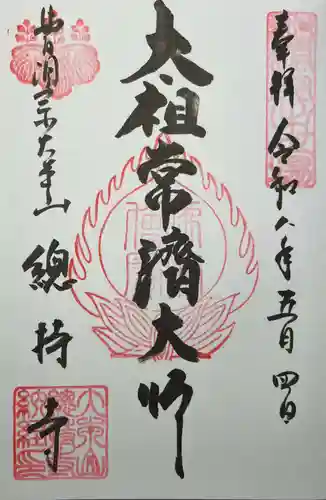 奉拝 令和八年五月四日
太祖常濟大師
曹洞宗大本山
總持寺